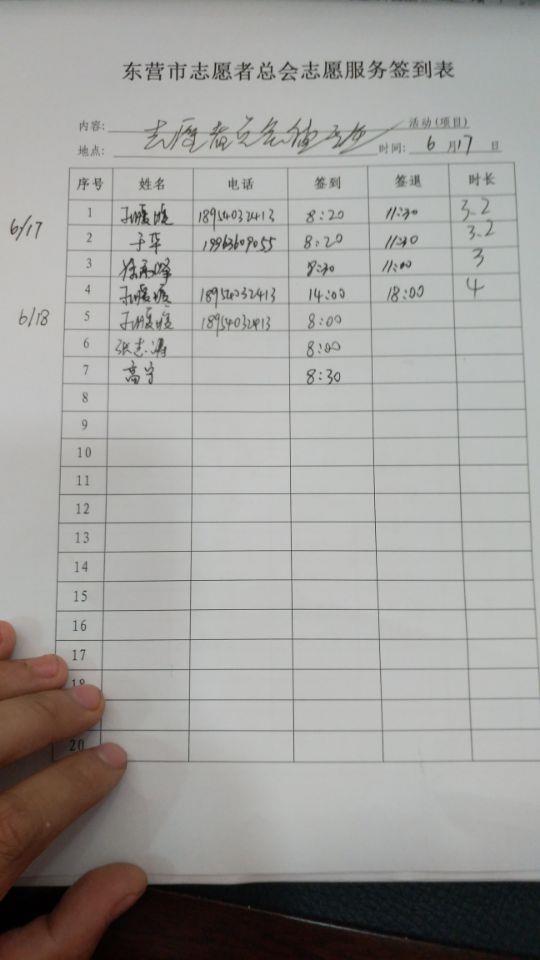 东营市志愿者总会志愿服务签到表
内容: 志愿者总会值班 活动(项目)
地点: 时间: 6月17日
序号 姓名 电话 签到 签退 时长
6/17 1 18954032413 8:20 11:30 3.2
2 于华 8:20 11:30 3.2
3 8:30 11:00 3
4 18954032413 14:00 18:00 4
6/18 5 18954032413 8:00
6 8:00
7 高宁 8:30
8
9
10
11
12
13
14
15
16
17
18
20